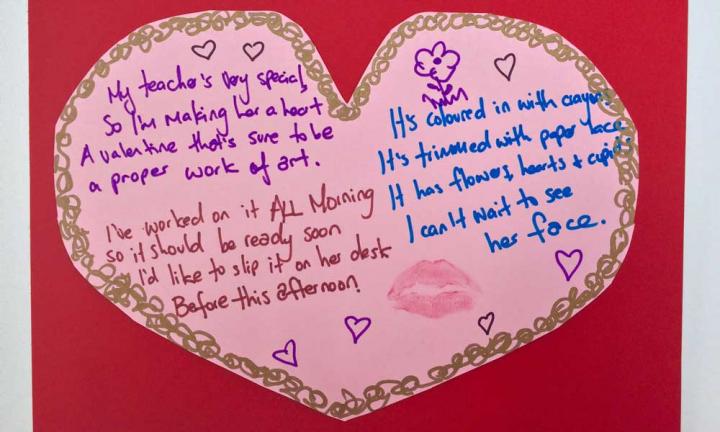 My teacher's Very special,
So I'm making her a heart
A valentine that's sure to be
a proper work of art.
I've worked on it All Morning
so it should be ready soon
I'd like to slip it on her desk
Before this afternoon!
It's coloured in with crayons
It's trimmed with paper lace
It has flowers, hearts & cupids
I can't wait to see
her face.